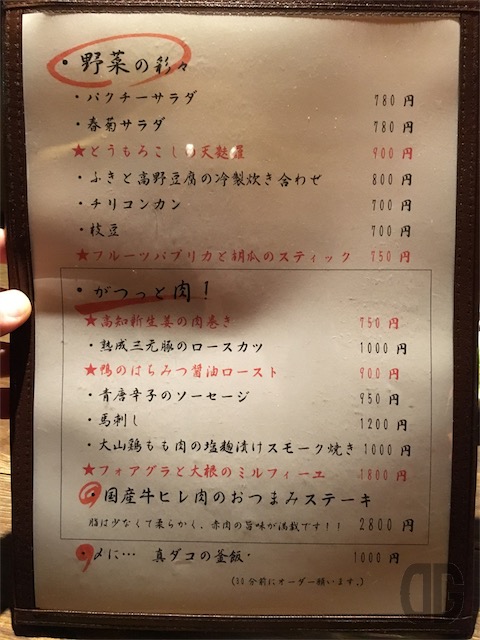 ・野菜の彩々
・パクチーサラダ 780 円
・春菊サラダ 780 円
★とうもろこしの天麩羅 900 円
・ふきと高野豆腐の冷製炊き合わせ 800 円
・チリコンカン 700 円
・枝豆 700 円
★フルーツパプリカと胡瓜のスティック 750 円
・がつっと肉！
★高知新生姜の肉巻き 750 円
・熟成三元豚のロースカツ 1000 円
★鴨のはちみつ醤油ロースト 900 円
・青唐辛子のソーセージ 950 円
・馬刺し 1200 円
・大山鶏もも肉の塩麹漬けスモーク焼き 1000 円
★フォアグラと大根のミルフィーユ 1800 円
・国産牛ヒレ肉のおつまみステーキ
脂は少なくて柔らかく、赤肉の旨味が満載です！！ 2800 円
・〆に… 真ダコの釜飯・ 1000 円
(30分前にオーダー願います。)
DG